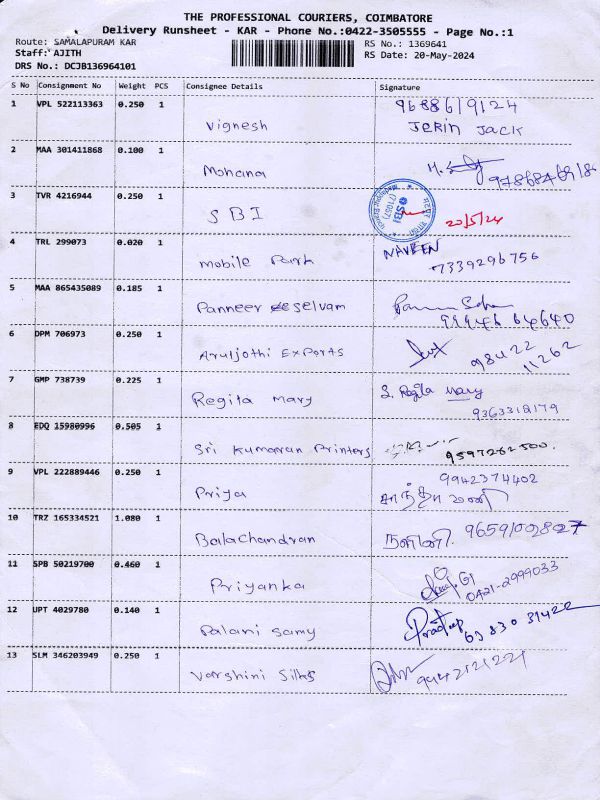 THE PROFESSIONAL COURIERS, COIMBATORE
Delivery Runsheet - KAR - Phone No.:0422-3505555 - Page No.:1
Route: SAMALAPURAM KAR RS No.: 1369641
Staff: AJITH RS Date: 20-May-2024
DRS No.: DCJB136964101
S No Consignment No Weight PCS Consignee Details Signature
1 VPL 522113363 0.250 1 9688619124
Vignesh Jerin Jack
2 MAA 301411868 0.100 1
Mohana
3 TVR 4216944 0.250 1
SBI SBI 20/5/24
4 TRL 299073 0.020 1 NAVEEN
Mobile Park 7339296756
5 MAA 865435089 0.185 1
Panneer selvam 99946 64640
6 DPM 706973 0.250 1
Aruljothi Exports 98422 11262
7 GMP 738739 0.225 1 S. Regila Mary
Regita Mary 9363318179
8 EDQ 15980996 0.505 1
Sri Kumaran Printers 9597262500.
9 VPL 222889446 0.250 1 9942374402
Priya சாந்தாமணி
10 TRZ 165334521 1.080 1
Balachandran நளினி. 9659100827
11 SPB 50219700 0.460 1
Priyanka 0421-2999033
12 UPT 4029780 0.140 1
Palani Samy Pradeep 63830 31422
13 SLM 346203949 0.250 1
Varshini Silks 9442121221